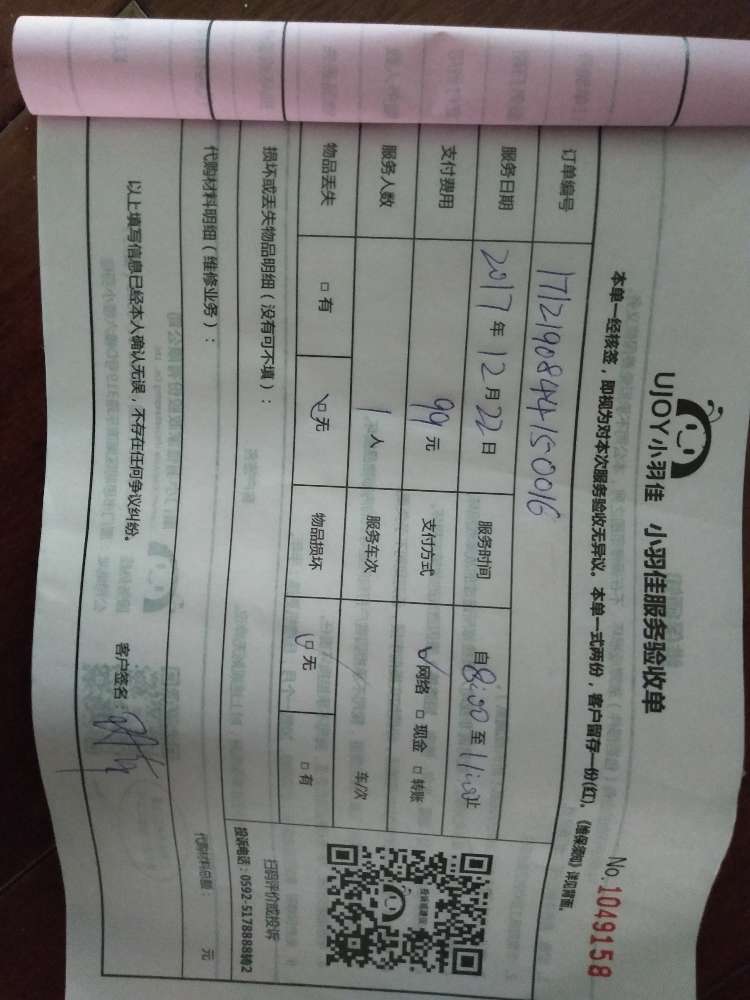 UJOY小羽佳 小羽佳服务验收单 No.1049158
本单一经核签，即视为对本次服务验收无异议。本单一式两份，客户留存一份(红)。《维保须知》详见背面。
订单编号 1712190844150016
服务日期 2017年12月22日 服务时间 自8:00至11:00止
支付费用 99元 支付方式 ✓网络 □现金 □转账
服务人数 1人 服务车次 / 车/次
物品丢失 □有 ☑无 物品损坏 ☑无 □有
损坏或丢失物品明细（没有可不填）：
扫码评价或投诉
投诉电话：0592-5178888转2
代购材料明细（维修业务）：
代购材料总额： 元
以上填写信息已经本人确认无误，不存在任何争议纠纷。 客户签名：